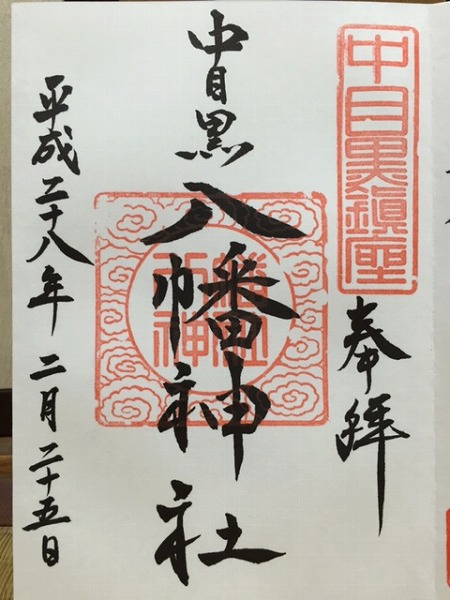 中目黒鎮座
奉拝
中目黒
八幡神社
平成二十八年 二月二十五日